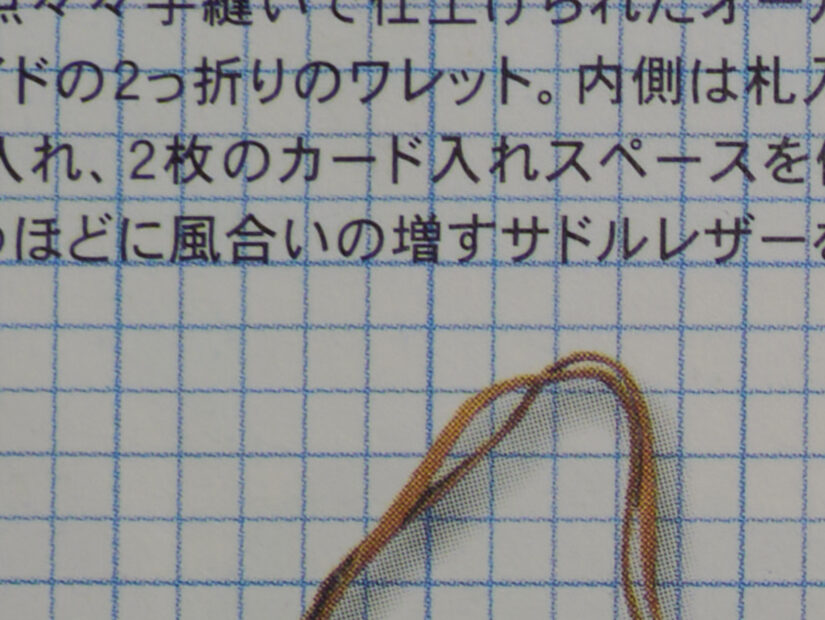 点々々手縫いで仕上げられたオー
ドの2っ折りのワレット。内側は札入
入れ、2枚のカード入れスペースを
ほどに風合いの増すサドルレザーを